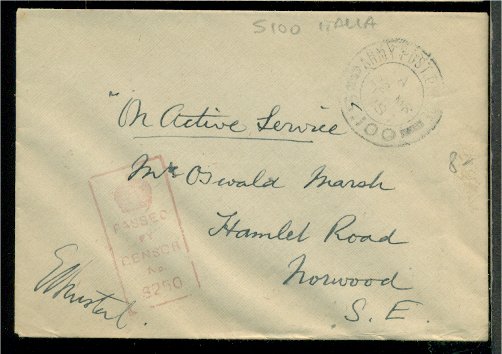 S100 ITALIA
ARMY POST
S.100
"On Active Service"
8/
Mr Oswald Marsh
Hamlet Road
Norwood
S. E.
PASSED
BY
CENSOR
No.
3250